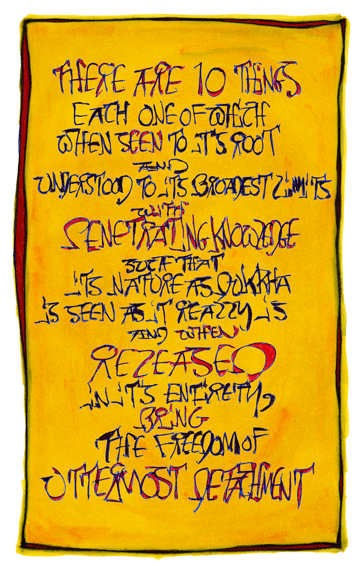 THERE ARE 10 THINGS
EACH ONE OF WHICH
WHEN SEEN TO IT'S ROOT
AND
UNDERSTOOD TO IT'S BROADEST LIMITS
WITH
PENETRATING KNOWLEDGE
SUCH THAT
ITS NATURE AS DUKKHA
IS SEEN AS IT REALLY IS
AND WHEN
RELEASED
IN IT'S ENTIRETY,
BRING
THE FREEDOM OF
UTTERMOST DETACHMENT